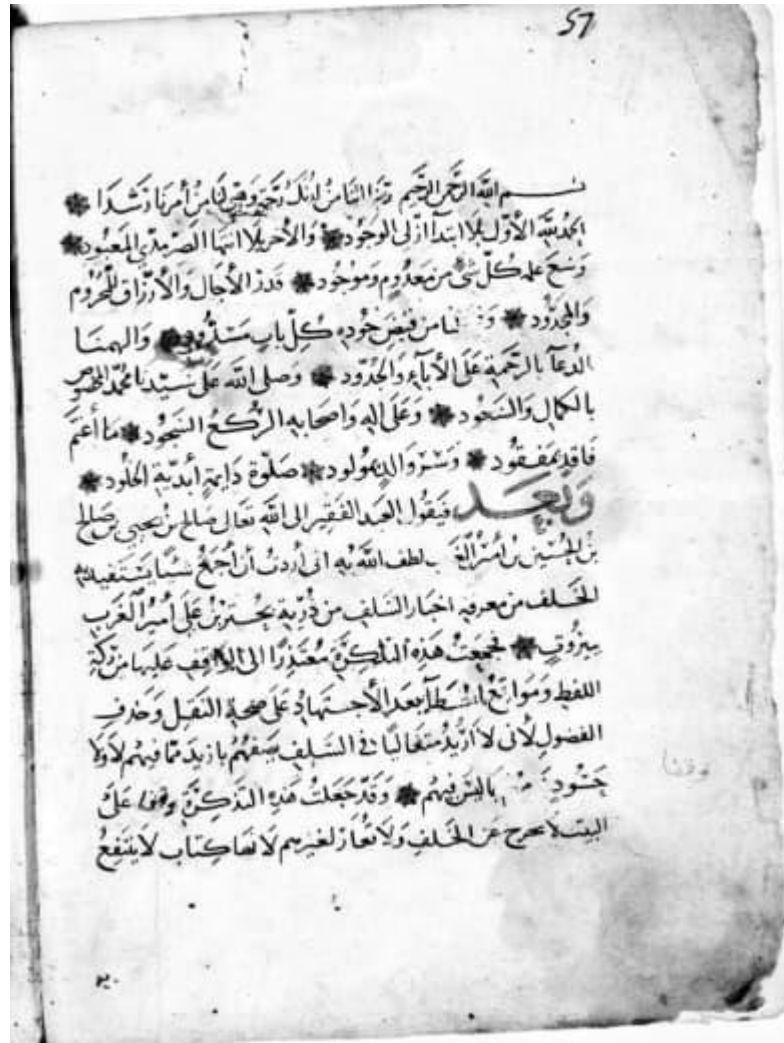 57
بسم الله الرحمن الرحيم ربنا اتنا من لدنك رحمة وهيئ لنا من أمرنا رشدا
الحمد لله الأول بلا ابتدا أزلي الوجود والأخر بلا انتها الصرمدي المعبود
وسع علمه كل شئ من معدوم وموجود قدر الأجال والأرزاق للمحروم
والمجدود من فيض جوده كل باب مسدود والهمنا
الدعآ بالرحمة على الأبآء والجدود وصلى الله على سيدنا محمد المخصوص
بالكمال والسجود وعلى اله واصحابه الركع السجود ما أغتم
فاقد بمفقود وسر والد بمولود صلوة دايمة أبدية الخلود
وبعد فيقول العبد الفقير الى الله تعالى صالح بن يحيى بن صالح
بن الحسين بن أمير الغرب لطف الله به انى أردت أن أجمع شيئا يستفيد به
الخلف من معرفة اخبار السلف من ذرية بحتر بن على أمير الغرب
ببيروت فجمعت هذه التذكرة معتذرا الى الواقف عليها من ركة
اللفظ ومواقع الخطآ بعد الأجتهاد على صحة النقل وحذف
الفضول لأنى لا أريد متغاليا فى السلف يصفهم بازيد مما فيهم لا ولا
بما ليس فيهم وقد جعلت هذه التذكرة وقفا على
البيت لا تخرج عن الخلف ولا تعار لغيرهم لانها كتاب لا ينتفع